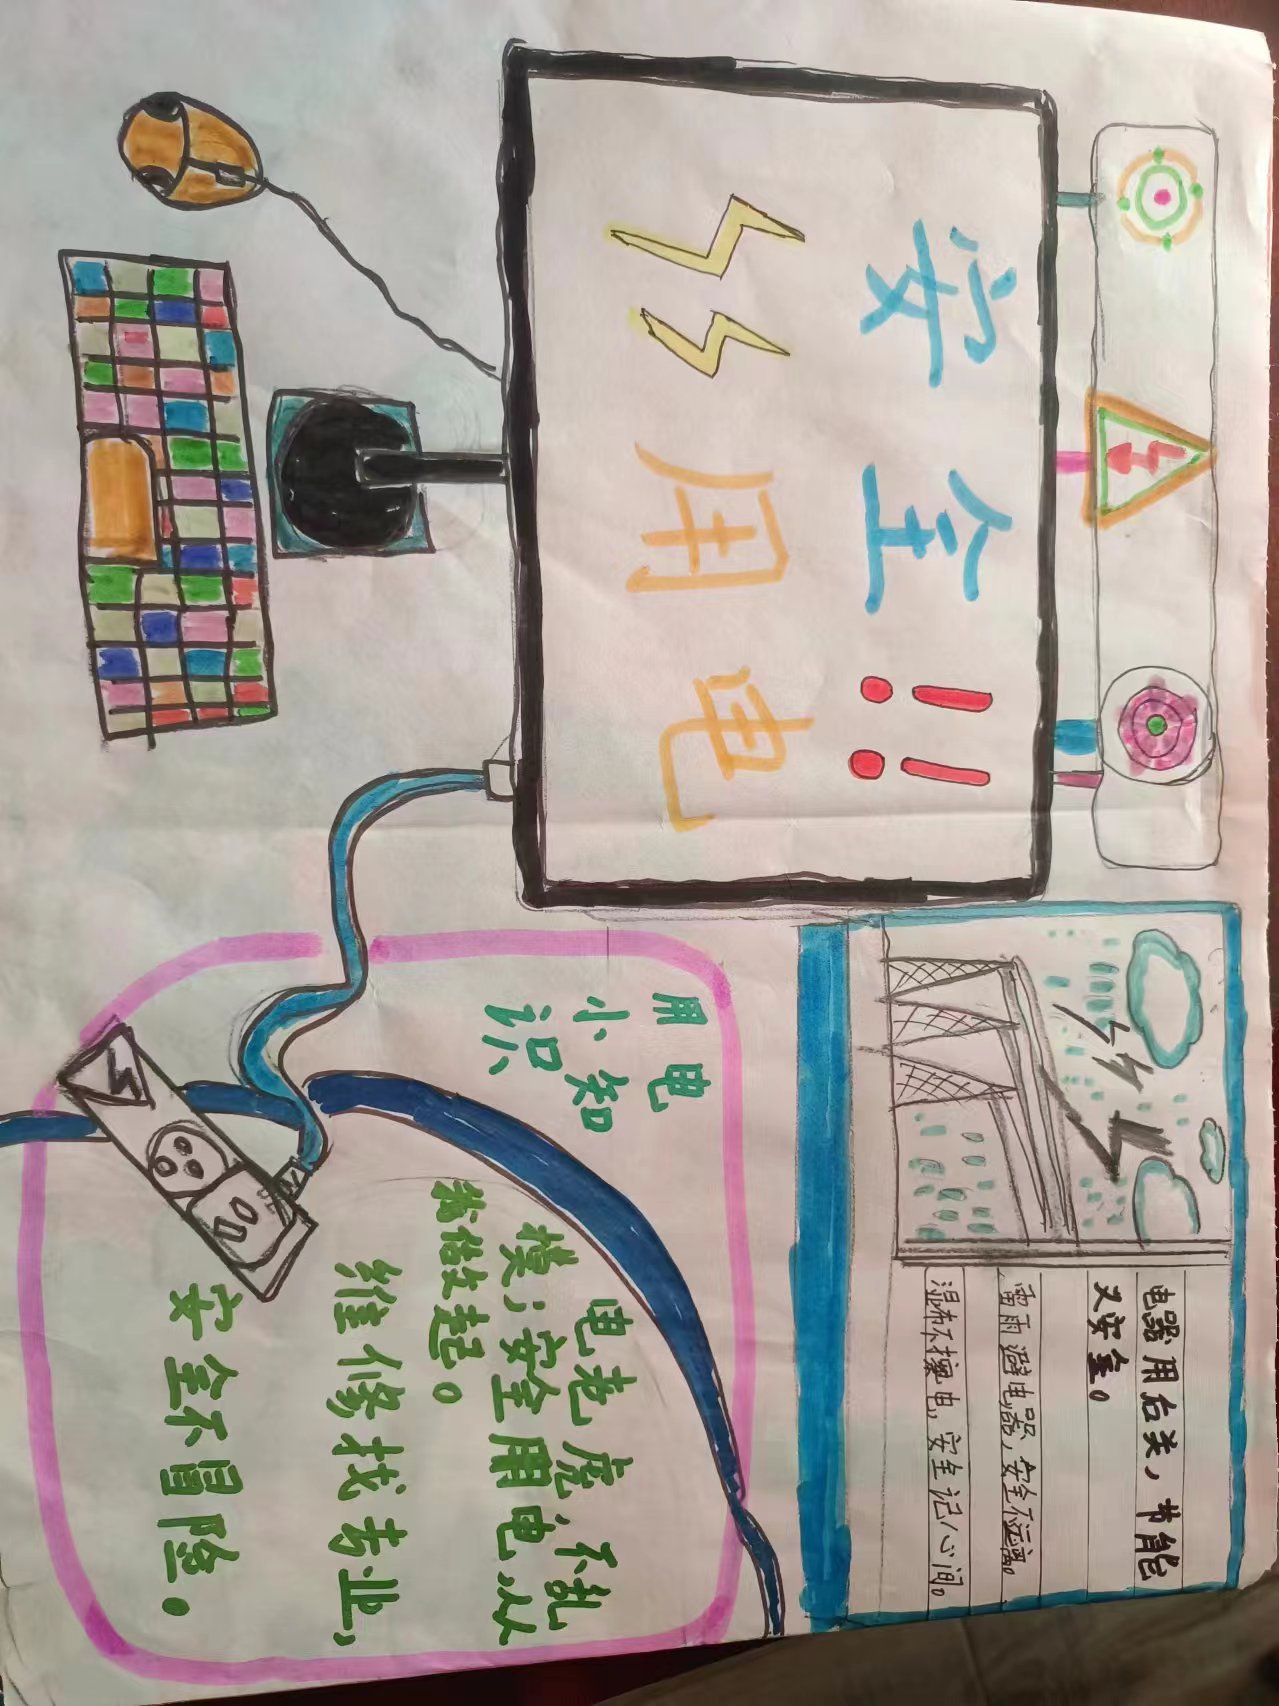 安全!!
用电
电器用后关，节能
又安全。
雷雨避电器，安全不远离。
湿布不擦电，安全记心间。
用电
小知
识
电老虎不乱
摸，安全用电从
我做起。
维修找专业，
安全不冒险。